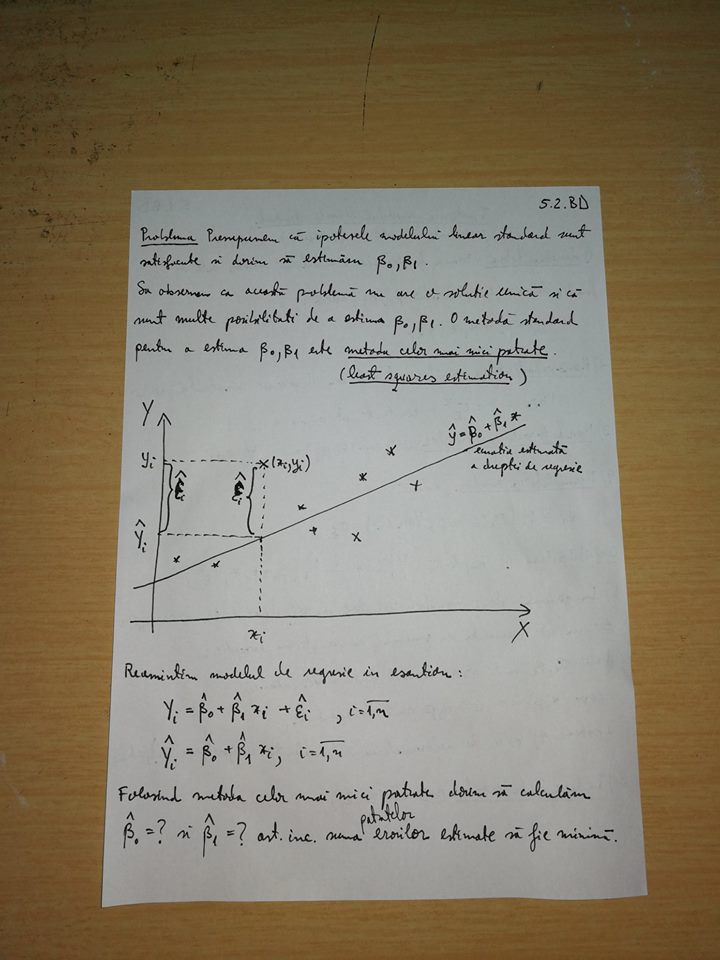 5.2.BD
Problema Presupunem că ipotezele modelului linear standard sunt
satisfăcute si dorim să estimăm β₀, β₁.
Sa observam ca această problemă nu are o soluție unică si că
sunt multe posibilitati de a estima β₀, β₁. O metodă standard
pentru a estima β₀, β₁ este metoda celor mai mici patrate.
(least squares estimation)
Y
ŷ = β̂₀ + β̂₁ x
ecuatia estimată
a dreptei de regresie
yᵢ
(xᵢ, yᵢ)
ε̂ᵢ
ε̂ᵢ
Ŷᵢ
xᵢ
X
Reamintim modelul de regresie in esantion:
Yᵢ = β̂₀ + β̂₁ xᵢ + ε̂ᵢ , i = 1,n
Ŷᵢ = β̂₀ + β̂₁ xᵢ, i = 1,n
Folosind metoda celor mai mici patrate dorim să calculăm
patratelor
β̂₀ = ? si β̂₁ = ? ast. inc. suma erorilor estimate să fie minimă.